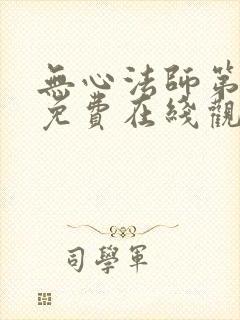 無心法師第
免費在綫觀
司學軍